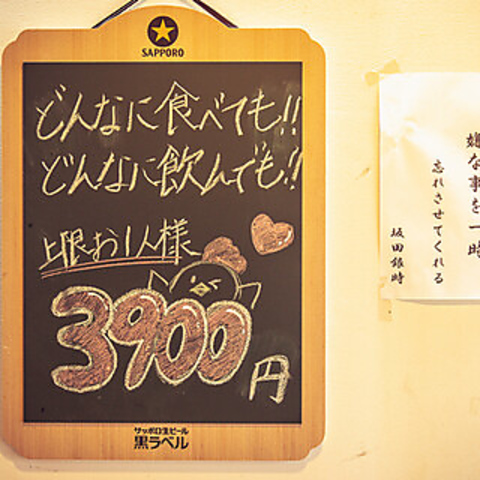 SAPPORO
どんなに食べても!!
どんなに飲んでも!!
上限お1人様
3900円
サッポロ生ビール
黒ラベル
嫌な事を一時
忘れさせてくれる
坂田銀時